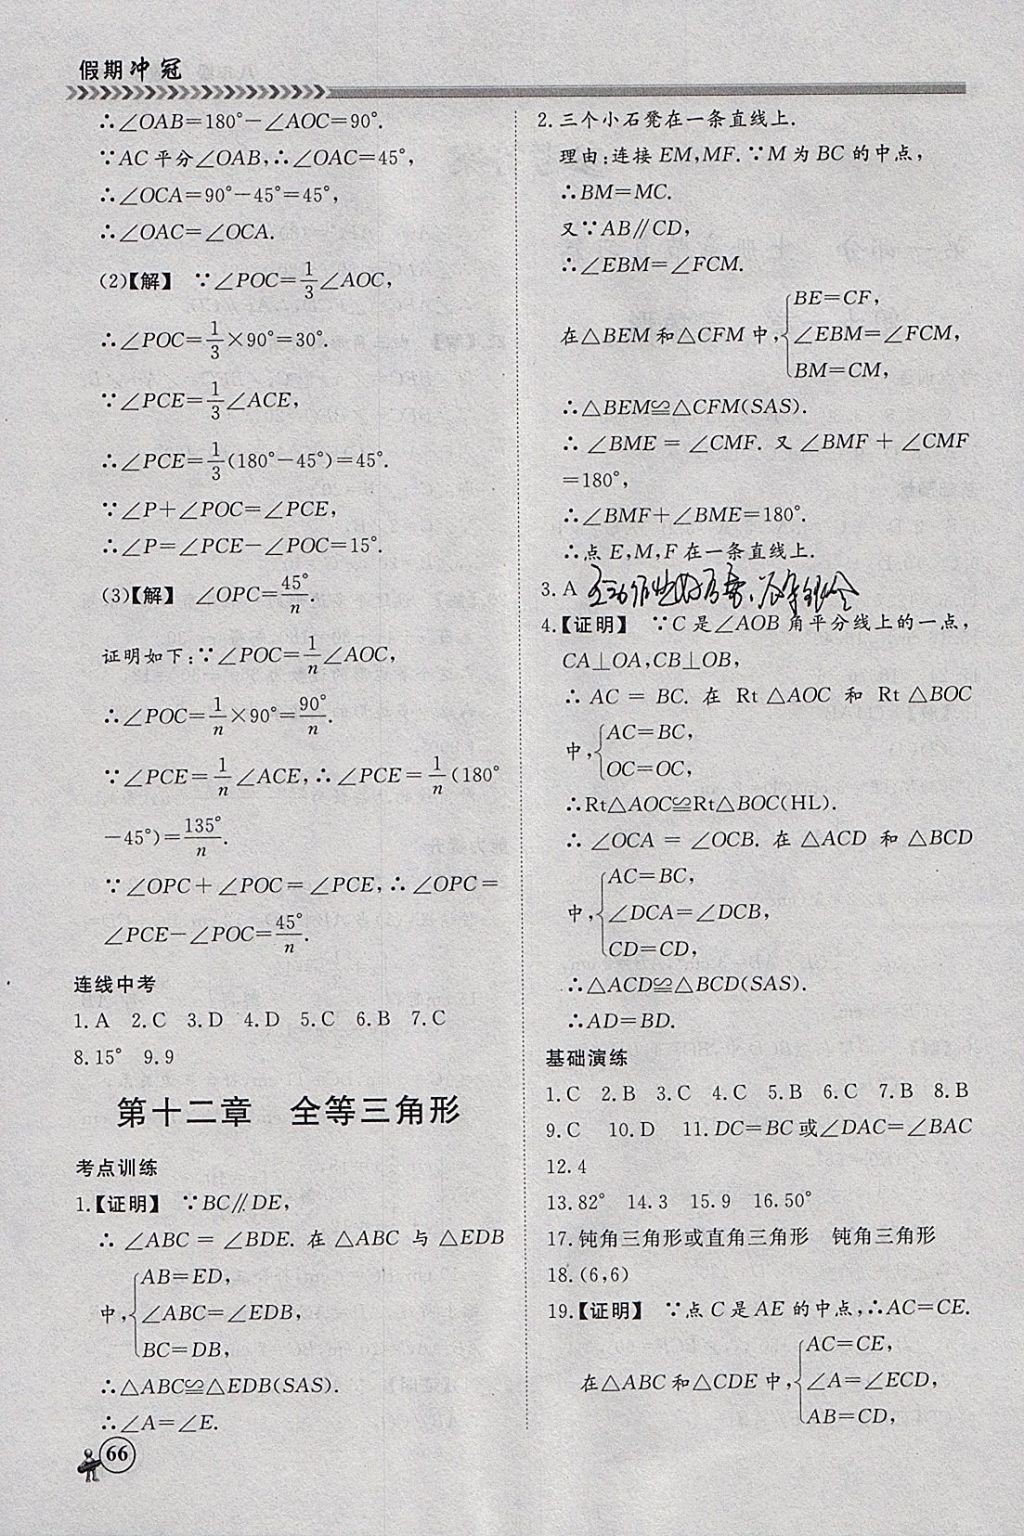 假期冲冠
∴∠OAB=180°-∠AOC=90°.
∵AC平分∠OAB,∴∠OAC=45°,
∴∠OCA=90°-45°=45°,
∴∠OAC=∠OCA.
(2)【解】 ∵∠POC=1/3∠AOC,
∴∠POC=1/3×90°=30°.
∵∠PCE=1/3∠ACE,
∴∠PCE=1/3(180°-45°)=45°.
∵∠P+∠POC=∠PCE,
∴∠P=∠PCE-∠POC=15°.
(3)【解】 ∠OPC=45°/n.
证明如下:∵∠POC=1/n∠AOC,
∴∠POC=1/n×90°=90°/n.
∵∠PCE=1/n∠ACE,∴∠PCE=1/n(180°
-45°)=135°/n.
∵∠OPC+∠POC=∠PCE,∴∠OPC=
∠PCE-∠POC=45°/n.
连线中考
1.A 2.C 3.D 4.D 5.C 6.B 7.C
8.15° 9.9
第十二章 全等三角形
考点训练
1.【证明】 ∵BC∥DE,
∴∠ABC=∠BDE.在△ABC与△EDB
中,{AB=ED,
∠ABC=∠EDB,
BC=DB,
∴△ABC≌△EDB(SAS).
∴∠A=∠E.
66
2.三个小石凳在一条直线上.
理由:连接EM,MF.∵M为BC的中点,
∴BM=MC.
又∵AB∥CD,
∴∠EBM=∠FCM.
在△BEM和△CFM中,{BE=CF,
∠EBM=∠FCM,
BM=CM,
∴△BEM≌△CFM(SAS).
∴∠BME=∠CMF.又∠BMF+∠CMF
=180°,
∴∠BMF+∠BME=180°.
∴点E,M,F在一条直线上.
3.A
4.【证明】 ∵C是∠AOB角平分线上的一点,
CA⊥OA,CB⊥OB,
∴AC=BC.在Rt△AOC和Rt△BOC
中,{AC=BC,
OC=OC,
∴Rt△AOC≌Rt△BOC(HL).
∴∠OCA=∠OCB.在△ACD和△BCD
中,{AC=BC,
∠DCA=∠DCB,
CD=CD,
∴△ACD≌△BCD(SAS).
∴AD=BD.
基础演练
1.C 2.B 3.C 4.C 5.B 6.C 7.B 8.B
9.C 10.D 11.DC=BC或∠DAC=∠BAC
12.4
13.82° 14.3 15.9 16.50°
17.钝角三角形或直角三角形 钝角三角形
18.(6,6)
19.【证明】 ∵点C是AE的中点,∴AC=CE.
在△ABC和△CDE中,{AC=CE,
∠A=∠ECD,
AB=CD,